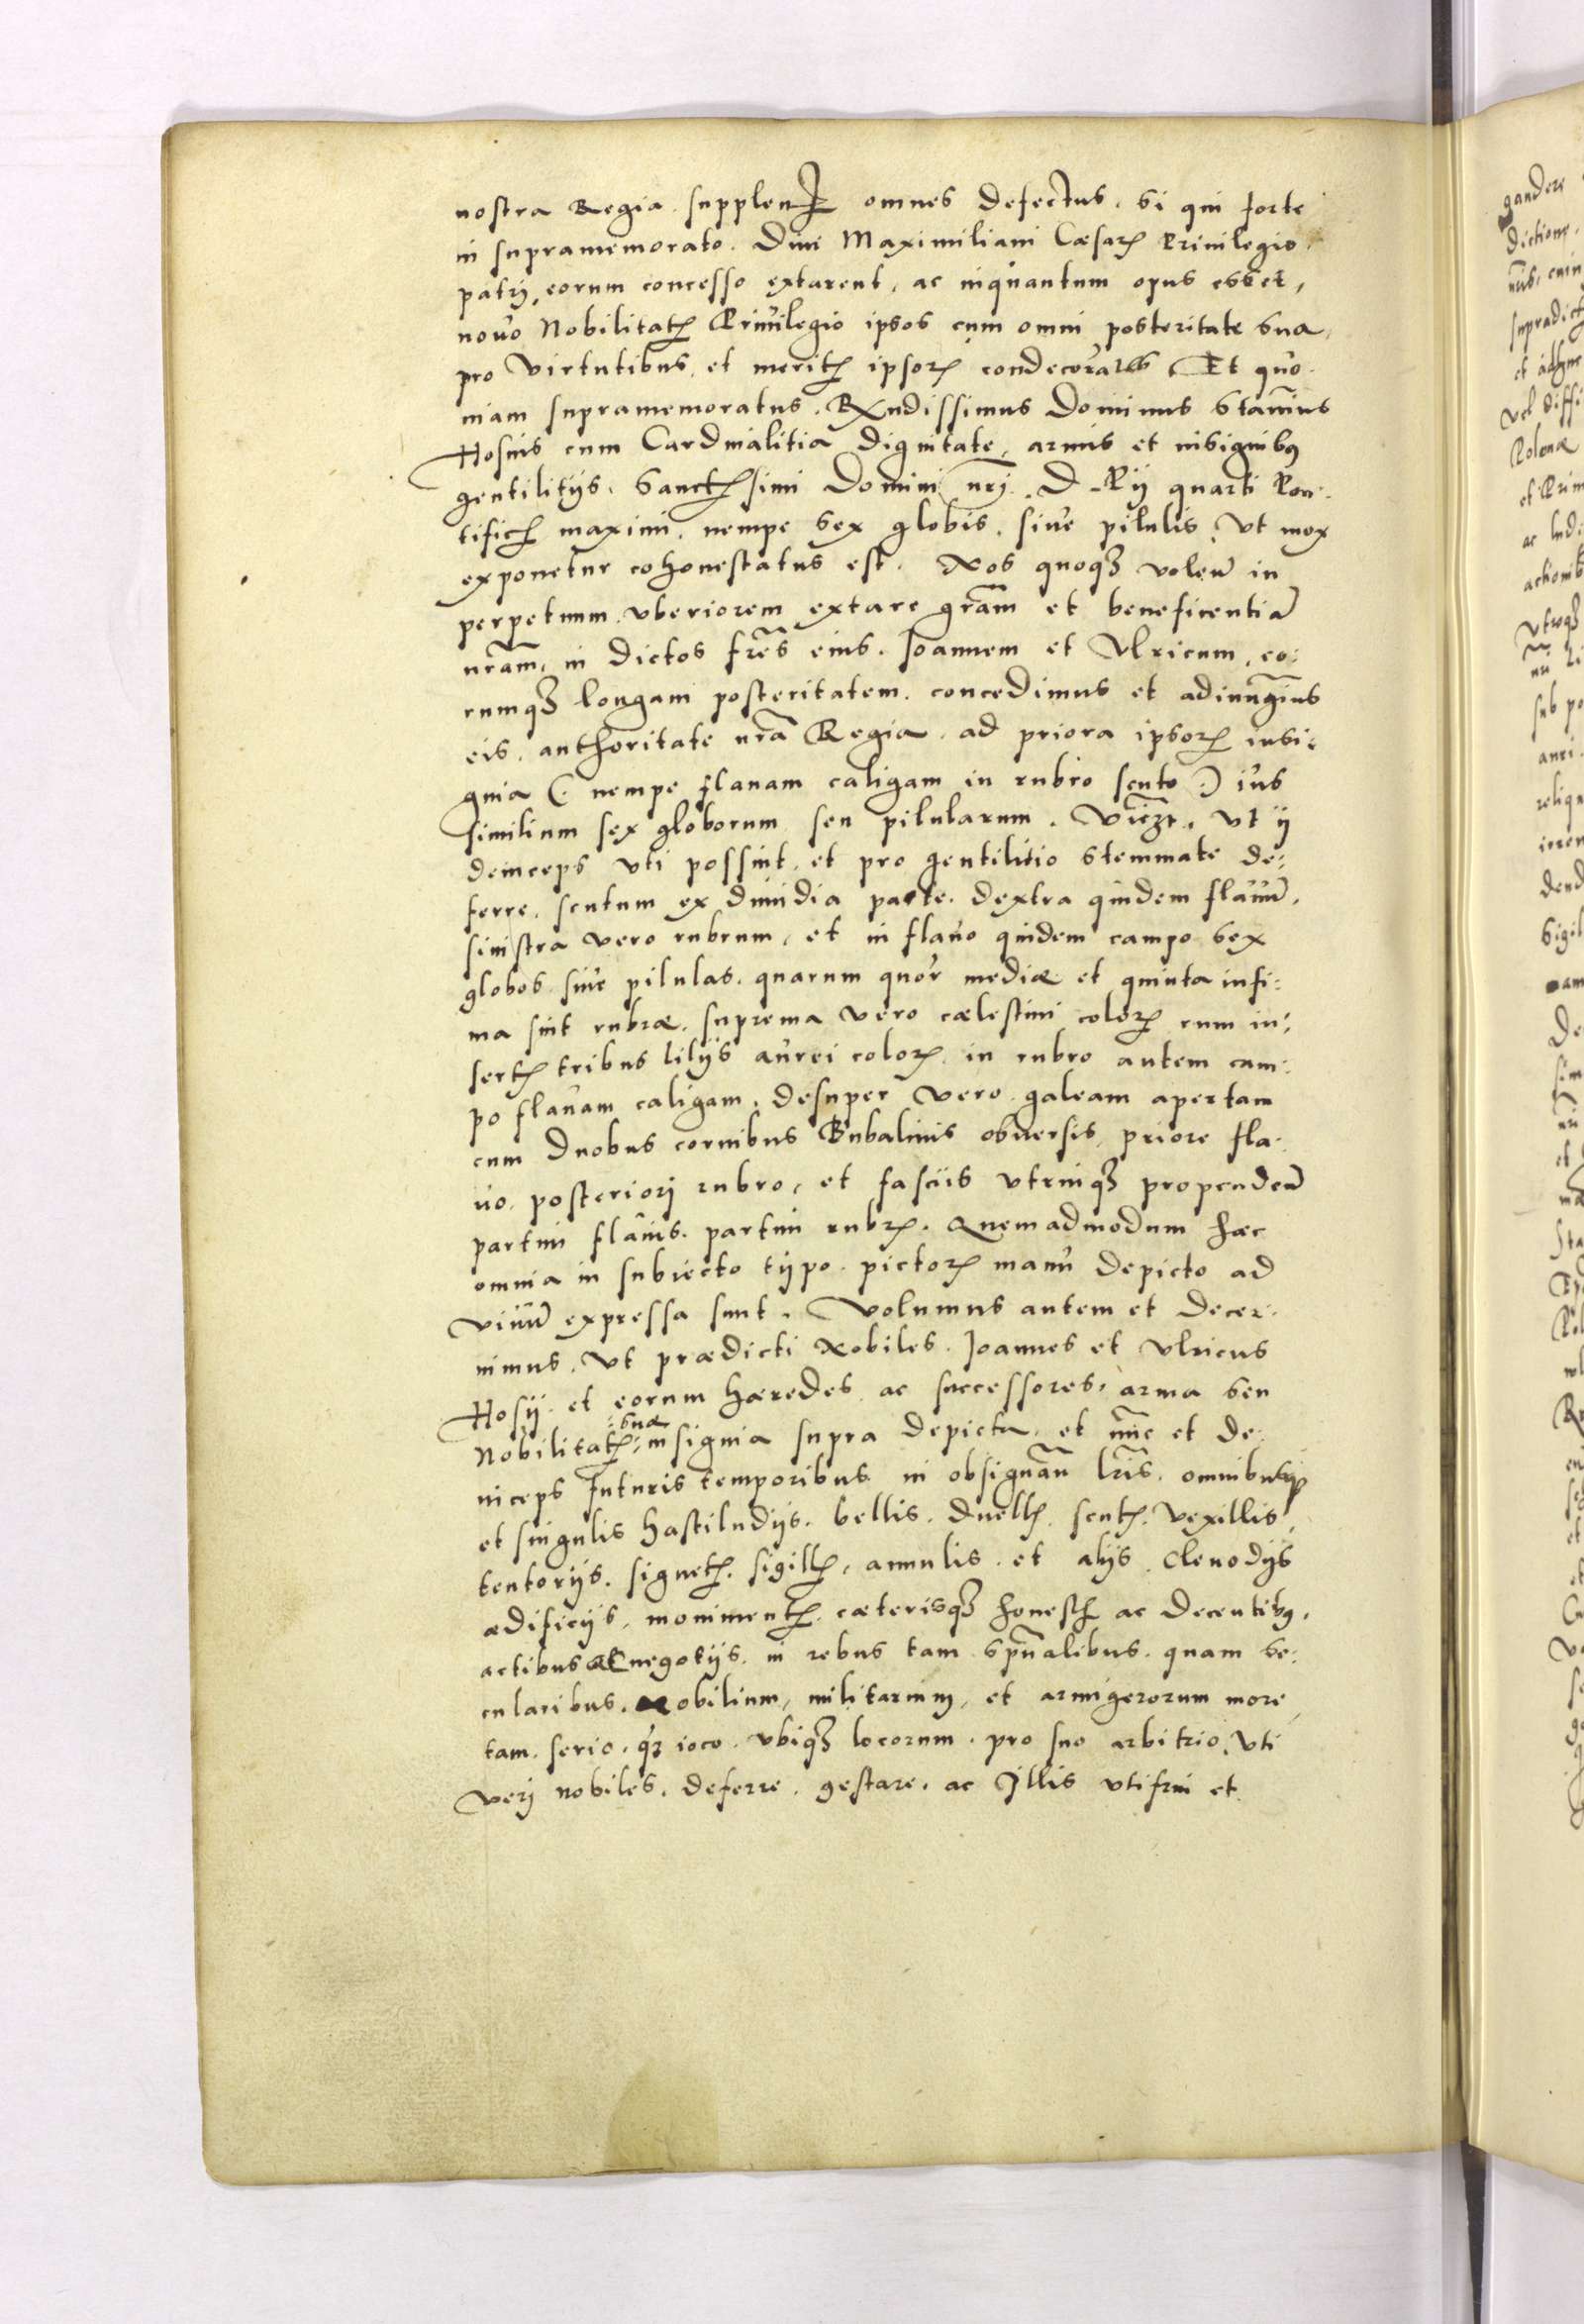 nostra Regia supplentes omnes defectus, si qui forte
in supramemorato. Divi Maximiliani Cæsaris Privilegio
patri eorum concesso extarent, ac inquantum opus esset,
novo Nobilitatis Privilegio ipsos cum omni posteritate sua,
pro virtutibus et meritis ipsorum condecorares. Et quo-
niam supramemoratus. Rxndissimus Dominus Stanius
Hosius cum Cardinalitia dignitate, armis et insignibus
gentilitijs. Sanctissimi Domini nrj. D. Pij quarti Pon-
tificis maximi, nempe sex globis, sive pilulis, ut mox
exponetur cohonestatus est. Nos quoque volen in
perpetuum uberiorem extare gram et beneficentia
nram, in dictos fres eius. Joannem et Vlricum, eo-
rumque longam posteritatem. concedimus et adiungimus
eis, authoritate nra Regia, ad priora ipsorum insi-
gnia (: nempe flauam caligam in rubro scuto :) ius
similium sex globorum seu pilularum. Viczt, ut ij
deinceps uti possint, et pro gentilitio stemmate de-
ferre, scutum ex dimidia parte. dextra quidem flavu,
sinistra vero rubrum, et in flavo quidem campo sex
globos sive pilulas, quarum quor mediæ et quinta infi-
ma sint rubræ, suprema vero cælestini coloris cum in-
sertis tribus lilijs aurei coloris in rubro autem cam-
po flavam caligam, desuper vero galeam apertam
cum duobus cornibus Bubalinis obversis, priore fla-
vo, posteriorj rubro, et fasciis utrinque propenden
partim flavis, partim rubris. Quemadmodum hæc
omnia in subiecto typo pictoris manu depicto ad
vivu expressa sunt. Volumus autem et decer-
nimus, ut prædicti Nobiles. Joannes et Vlricus
Hosij et eorum hæredes ac successores, arma seu
Nobilitatis suæ insignia supra depicta, et nunc et de-
inceps futuris temporibus in obsignan lris, omnibusque
et singulis hastiludijs, bellis, duellis, scutis, vexillis,
tentorijs, signetis, sigillis, annulis, et alijs Clenodijs
ædificijs, monimentis, cæterisque honestis ac decentibus,
actibus et negotijs, in rebus tam spualibus, quam se-
cularibus, Nobilium, militarium, et armigerorum more,
tam serio, quam ioco, ubique locorum, pro suo arbitrio, uti
verj nobiles, deferre, gestare, ac Illis uti frui et